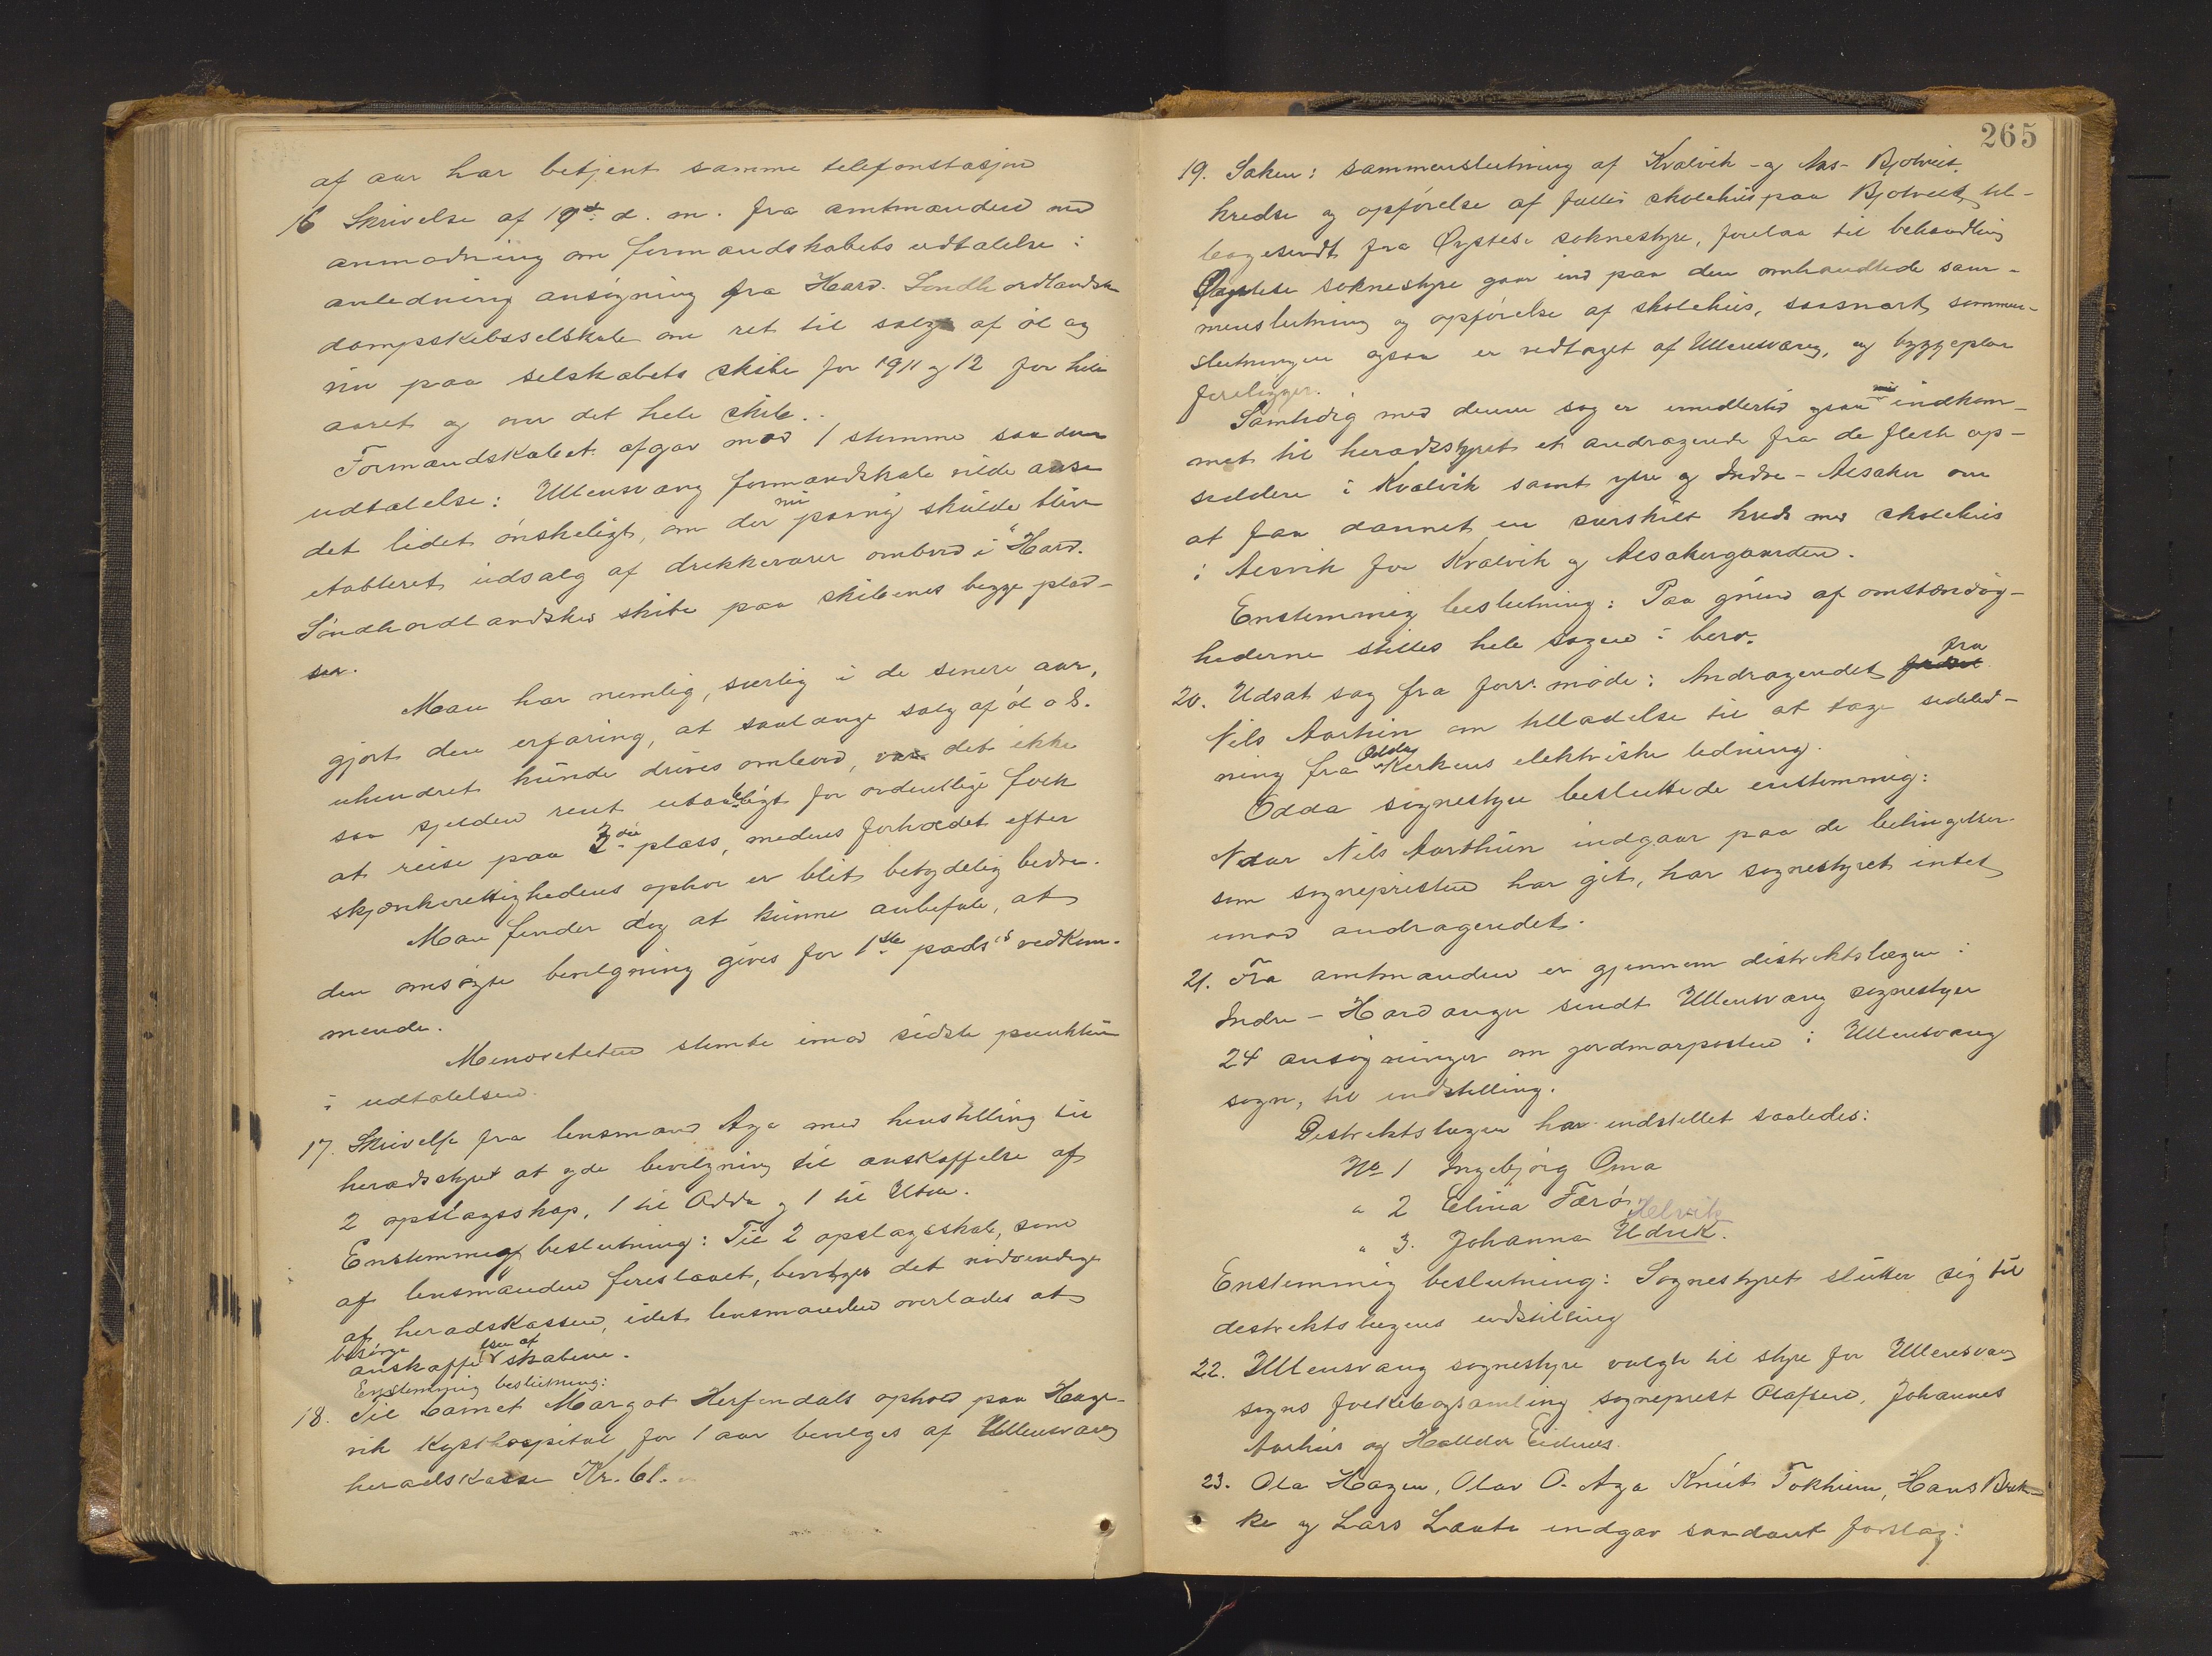 af aar har betjent samme telefonstasjon
16 Skrivelse af 19de d. m. fra amtmanden med
anmodning om formandskabets udtalelse i
anledning ansøgning fra Hard. Søndhordlandske
dampskibsselskab om ret til salg af øl og
vin paa selskabets skibe for 1911 og 12 for hele
aaret og over det hele skib.
Formandskabet afgav mod 1 stemme saadan
udtalelse: Ullensvang formandskab vilde anse
det lidet ønskeligt, om der nu paany skulde blive
etableret udsalg af drikkevarer ombord i "Hard.
Søndhordlandskes skibe paa skibenes begge plad-
ser.
Man har nemlig, særlig i de senere aar,
gjort den erfaring, at saalænge salg af øl o.s.
uhindret kunde drives ombord, var det ikke
saa sjelden rent utaaleligt for ordentlige folk
at reise paa 2den plass, medens forholdet efter
skjænkerettighedens ophør er blit betydelig bedre.
Man finder dog at kunne anbefale, at
den omsøgte bevilgning gives for 1ste plads's vedkom-
mende.
Minoriteten stemte imod sidste punktum
i udtalelsen.
17. Skrivelse fra lensmand Aga med henstilling til
heradsstyret at yde bevilgning til anskaffelse af
2 opslagsskap, 1 til Odda og 1 til Utne.
Enstemmig beslutning: Til 2 opslagsskab, som
af lensmanden foreslaaet, bevilges det nødvendige
af heradskassen, idet lensmanden overlades at
besørge
anskaffelsen af skabene.
Enstemmig beslutning:
18. Til barnet Margot Herfindals ophold paa Hauge-
vik Kysthospital for 1 aar bevilges af Ullensvang
heradskasse Kr. 61.
265
19. Saken: sammenslutning af Kvalvik- og Aas- Bjotveit
kredse og opførelse af fælles skolehus paa Bjotveit, til-
bagesendt fra Øystese soknestyre, forelaa til behandling
Øystese soknestyre gaar ind paa den omhandlede sam-
menslutning og opførelse af skolehus, saasnart sammen-
slutningen ogsaa er vedtaget af Ullensvang, og byggeplan
foreligger.
Samtidig med denne sag er imidlertid ogsaa nu indkom-
met til heradsstyret et andragende fra de fleste op-
siddere i Kvalvik samt ytre og Indre-Alsaker om
at faa dannet en særskilt kreds med skolehus
i Alsvik for Kvalvik og Alsakergaardene.
Enstemmig beslutning: Paa grund af omstændig-
hederne stilles hele sagen i bero.
20. Udsat sag fra forr. møde: Andragendet fra
Nils Aarthun om tilladelse til at tage sideled-
ning fra Odda Kirkens elektriske ledning.
Odda sognestyre besluttede enstemmig:
Naar Nils Aarthun indgaar paa de betingelser
som sognepresten har git, har sognestyret intet
imod andragendet.
21. Fra amtmanden er gjennem distriktslægen i
Indre-Hardanger sendt Ullensvang sognestyre
24 ansøgninger om jordmorposten i Ullensvang
sogn, til indstilling.
Distriktslægen har indstillet saaledes:
No 1 Ingebjørg Oma
" 2 Elina Færø
Helvik
" 3. Johanna Udvik.
Enstemmig beslutning: Sognestyret slutter sig til
distriktslægens indstilling
22. Ullensvang sognestyre valgte til styre for Ullensvang
sogns folkebogsamling sogneprest Olafsen, Johannes
Aarhus og Halldor Eidnes.
23. Ola Hagen, Olav O. Aga Knut Tokheim, Hans Brek-
ke og Lars Laate indgav saadant forslag: